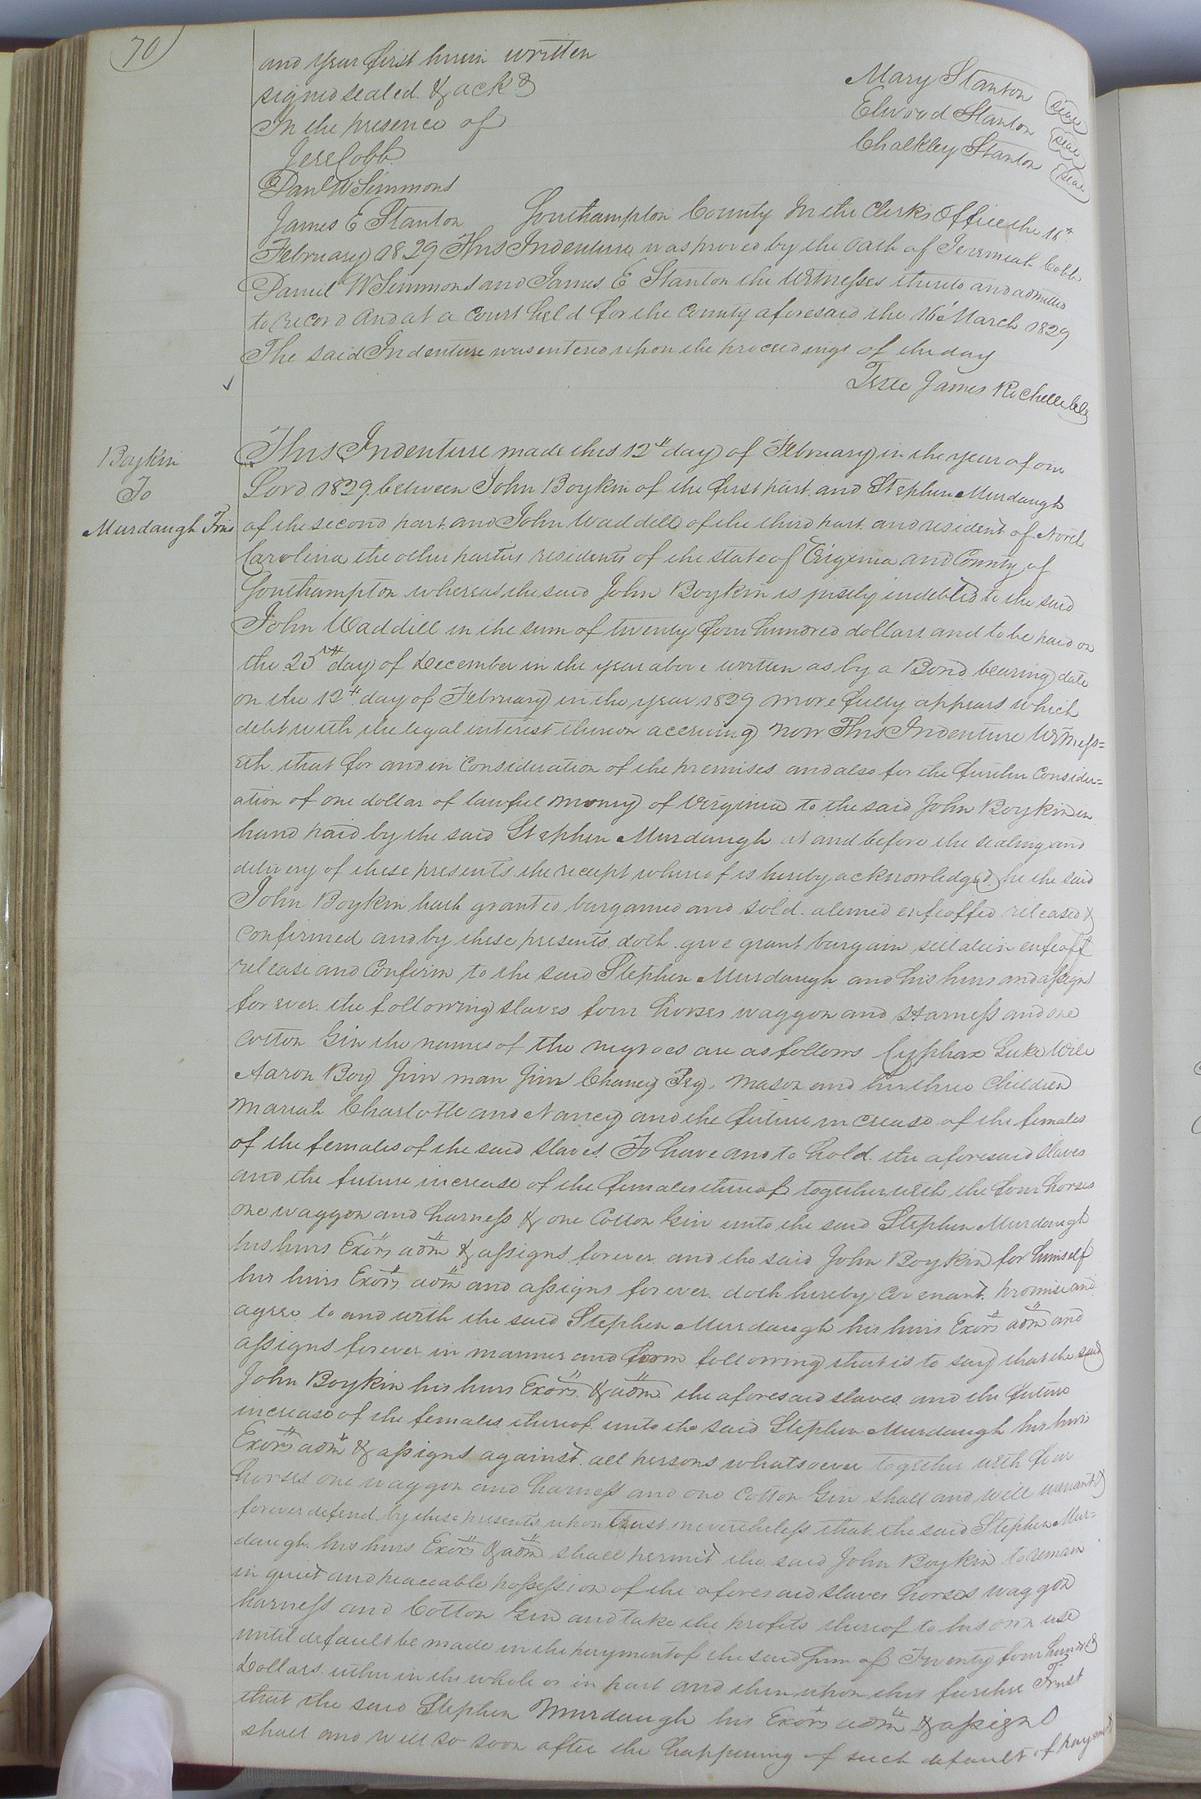 70
and year first herein written
signed sealed & ackd
In the presence of
Jere Cobb
Danl W Simmons
James E Stanton
Mary Stanton seal
Elwood Stanton seal
Chalkley Stanton seal
Southampton County In the Clerks Office the 16th
February 1829 This Indenture was proved by the oath of Jeremiah Cobb
Daniel W Simmons and James E Stanton the witnesses thereto and admitted
to record And at a court held for the county aforesaid the 16th March 1829
The said Indenture was entered upon the proceedings of the day
Teste James Rochelle Clk
Boykin
To
Murdaugh Trus
This Indenture made this 12th day of February in the year of our
Lord 1829 between John Boykin of the first part and Stephen Murdaugh
of the second part and John Waddill of the third part and resident of North
Carolina the other parties residents of the state of Virginia and County of
Southampton whereas the said John Boykin is justly indebted to the said
John Waddill in the sum of twenty four hundred dollars and to be paid on
the 25th day of December in the year above written as by a Bond bearing date
on the 12th day of February in the year 1829 more fully appears which
debt with the legal interest thereon accruing now This Indenture Witness=
eth that for and in Consideration of the premises and also for the further Consider=
ation of one dollar of lawful money of Virginia to the said John Boykin in
hand paid by the said Stephen Murdaugh at and before the sealing and
delivery of these presents the receipt whereof is hereby acknowledged he the said
John Boykin hath granted bargained and sold aliened enfeoffed released &
confirmed and by these presents doth give grant bargain sell alien enfeoff
release and Confirm to the said Stephen Murdaugh and his heirs and assigns
for ever the following slaves four horses waggon and Harness and one
cotton Gin the names of the negroes are as follows Cyphax Luke Wile
Aaron Boy Jim man Jim Chaney Peg Mason and her three Children
Mariah Charlotte and Nancy and the future increase of the females
of the females of the said slaves To have and to hold the aforesaid slaves
and the future increase of the females thereof together with the four horses
one waggon and harness & one Cotton Gin unto the said Stephen Murdaugh
his heirs Exors adm & assigns forever and the said John Boykin for himself
his heirs Exors adm and assigns for ever doth hereby covenant promise and
agree to and with the said Stephen Murdaugh his heirs Exors adm and
assigns forever in manner and form following that is to say that the said
John Boykin his heirs Exors & adm the aforesaid slaves and the future
increase of the females thereof unto the said Stephen Murdaugh his heirs
Exors adm & assigns against all persons whatsoever together with four
horses one waggon and harness and one Cotton Gin shall and will warrant &
forever defend by these presents upon trust nevertheless that the said Stephen Mur=
daugh his heirs Exors & adm shall permit the said John Boykin to remain
in quiet and peaceable possession of the aforesaid slaves horses waggon
harness and Cotton Gin and take the profits thereof to his own use
until default be made in the payment of the said sum of Twenty four hundred
Dollars either in the whole or in part and then upon this further Trust
that the said Stephen Murdaugh his Exors adm & assigns
shall and will so soon after the happening of such default of payment